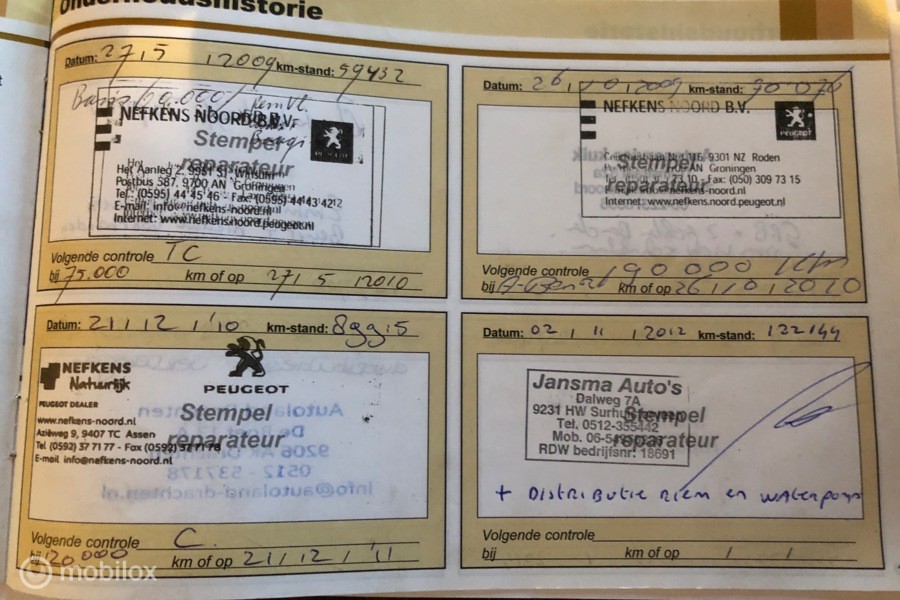 Onderhoudshistorie
Datum: 27/5 /2009 km-stand: 59432
NEFKENS NOORD B.V.
Stempel
reparateur
PEUGEOT
Het Aanleg 2, 9951 SJ Winsum
Postbus 587, 9700 AN Groningen
Tel.: (0595) 44 45 46 - Fax: (0595) 44 43 42
E-mail: info@nefkens-noord.nl
Internet: www.nefkens.noord.peugeot.nl
Volgende controle TC
bij 75.000 km of op 27/5 /2010
Datum: 26/10/2009 km-stand: 70 070
NEFKENS NOORD B.V.
PEUGEOT
Stempel
reparateur
9301 NZ Roden
AN Groningen
73 10 - Fax: (050) 309 73 15
info@nefkens-noord.nl
Internet: www.nefkens.noord.peugeot.nl
Volgende controle 90 000 km
bij km of op 26/10/2010
Datum: 21/12/'10 km-stand:
NEFKENS
Natuurlijk
PEUGEOT
PEUGEOT DEALER
Stempel
reparateur
www.nefkens-noord.nl
Aziëweg 9, 9407 TC Assen
Tel (0592) 37 71 77 - Fax (0592) 37 71 78
E-mail info@nefkens-noord.nl
Volgende controle C.
bij 120.000 km of op 21/12/'11
Datum: 02/11/2012 km-stand: 122144
Jansma Auto's
Dalweg 7A
9231 HW
Tel. 0512-355442
Mob. 06-54
RDW bedrijfsnr: 18691
Stempel
reparateur
+ DISTRIBUTIE RIEM en WATERPOMP
Volgende controle
bij km of op / /
mobilox